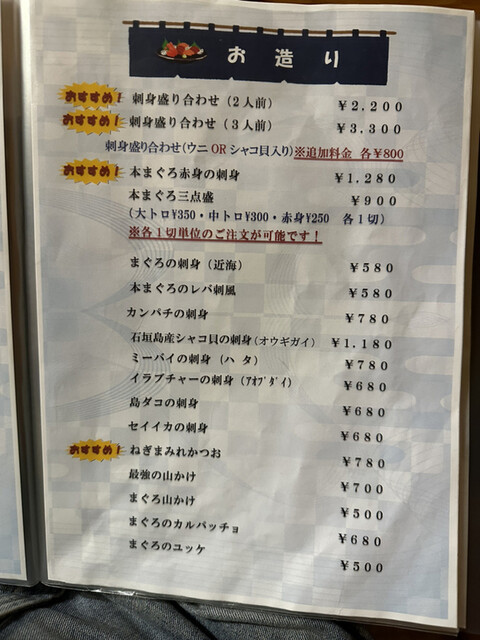 お造り
おすすめ! 刺身盛り合わせ（2人前） ￥2,200
おすすめ! 刺身盛り合わせ（3人前） ￥3,300
刺身盛り合わせ(ウニ OR シャコ貝入り)※追加料金 各￥800
おすすめ! 本まぐろ赤身の刺身 ￥1,280
本まぐろ三点盛 ￥900
(大トロ¥350・中トロ¥300・赤身¥250 各1切)
※各1切単位のご注文が可能です！
まぐろの刺身（近海） ￥580
本まぐろのレバ刺風 ￥580
カンパチの刺身 ￥780
石垣島産シャコ貝の刺身(オウギガイ) ￥1,180
ミーバイの刺身（ハタ） ￥780
イラブチャーの刺身（ｱｵﾌﾞﾀﾞｲ） ￥680
島ダコの刺身 ￥680
セイイカの刺身 ￥680
おすすめ! ねぎまみれかつお ￥780
最強の山かけ ￥700
まぐろ山かけ ￥500
まぐろのカルパッチョ ￥680
まぐろのユッケ ￥500